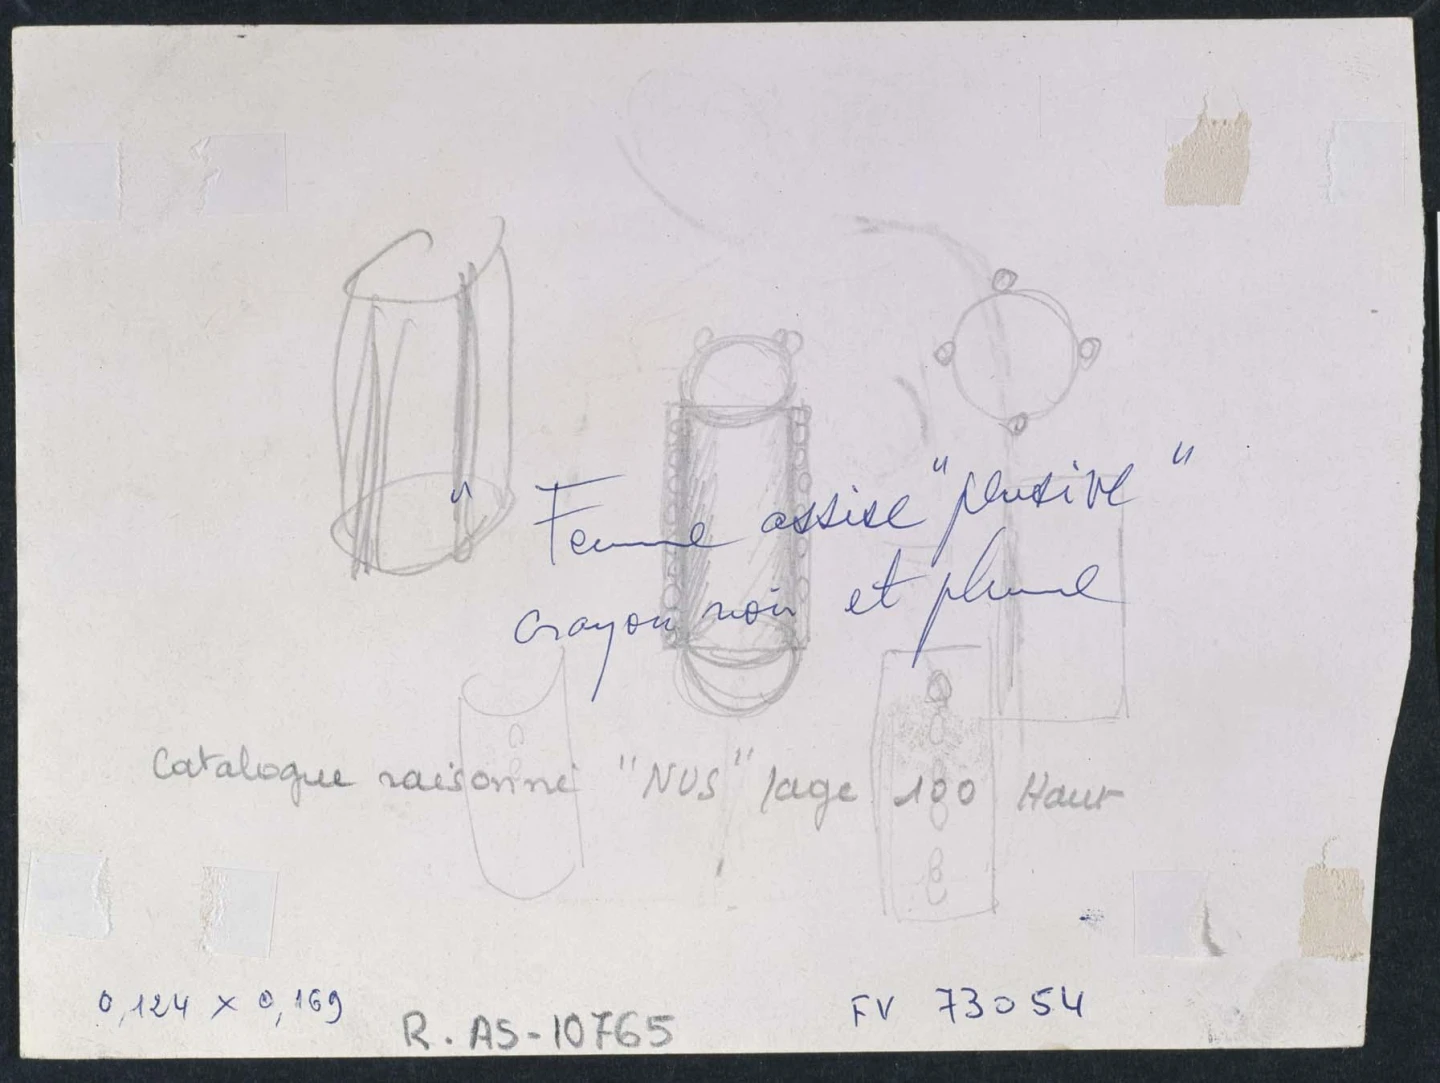 " Femme assise "pensive"
crayon noir et plume
Catalogue raisonné "NUS" page 100 Haut
0,124 x 0,169
FV 73054
R. AS-10765